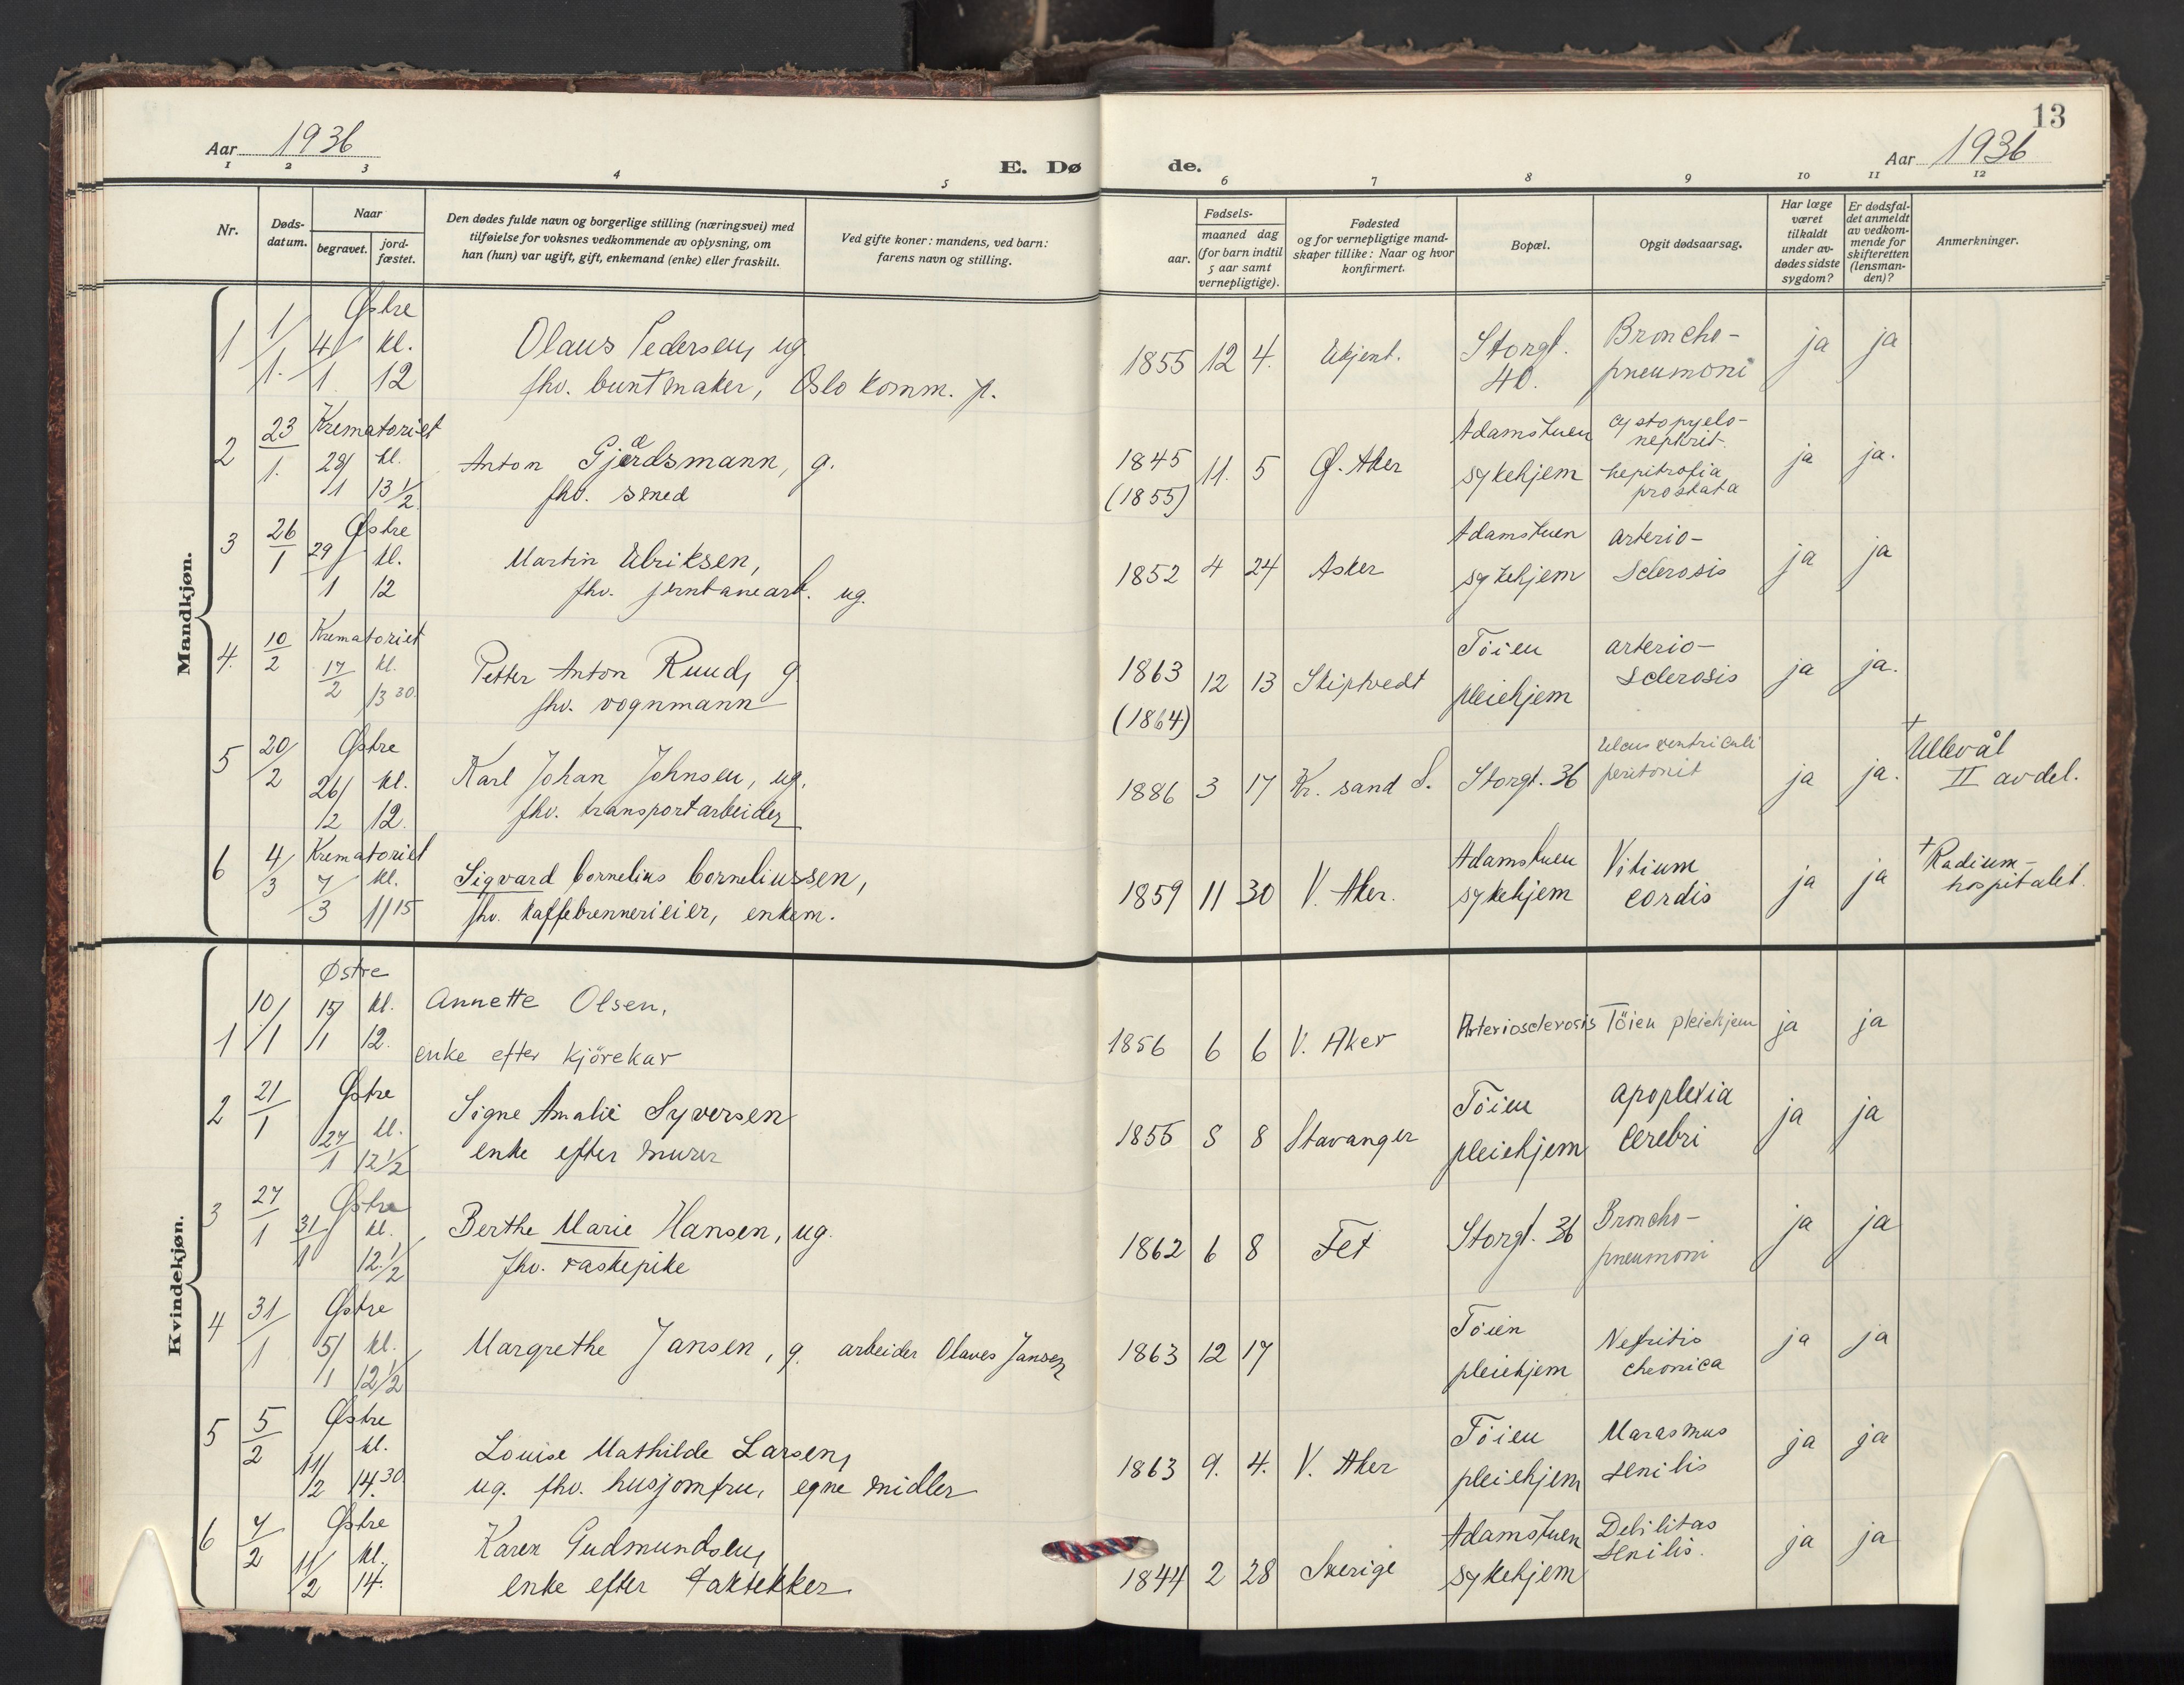 13
Aar 1936
Aar 1936
E. Dø
de.
1 2 3 4 5 6 7 8 9 10 11 12
Nr.
Døds-
datum.
Naar
begravet.
jord-
fæstet.
Den dødes fulde navn og borgerlige stilling (næringsvei) med
tilføielse for voksnes vedkommende av oplysning, om
han (hun) var ugift, gift, enkemand (enke) eller fraskilt.
Ved gifte koner: mandens, ved barn:
farens navn og stilling.
Fødsels-
aar.
maaned dag
(for barn indtil
5 aar samt
vernepligtige).
Fødested
og for vernepligtige mand-
skaper tillike: Naar og hvor
konfirmert.
Bopæl.
Opgit dødsaarsag.
Har læge
været
tilkaldt
under av-
dødes sidste
sygdom?
Er dødsfal-
det anmeldt
av vedkom-
mende for
skifteretten
(lensman-
den)?
Anmerkninger.
Mandkjøn.
1 1/1. Østre 4/1 kl. 12
Olaus Pedersen, ug.
fhv. buntmaker, Oslo komm. p.
1855 12 4. Ukjent. Storgt. 40. Broncho-
pneumoni ja ja
2 23/1. Krematoriet 29/1 kl. 13 1/2
Anton Gjærdsmann, g.
fhv. smed
1845
(1855) 11. 5 Ø. Aker Adamstuen
sykehjem cystopyelo-
nephrit
hepitrofia
prostata ja ja.
3 26/1 Østre 29/1 kl. 12
Martin Ulriksen,
fhv. jernbanearb. ug.
1852 4 24 Asker Adamstuen
sykehjem arterio-
sclerosis ja ja
4. 10/2 Krematoriet 17/2 kl. 13 30
Petter Anton Ruud, g
fhv. vognmann
1863
(1864) 12 13 Skiptvedt Töien
pleiehjem arterio-
sclerosis ja ja.
5 20/2 Østre 26/2 kl. 12.
Karl Johan Johnsen, ug.
fhv. transportarbeider
1886 3 17 Kr. sand S. Storgt. 36 Ulcus ventriculi
peritonit ja ja. + Ullevål
II avdel.
6 4/3 Krematoriet 7/3 kl. 11 15
Sigvard Cornelius Corneliussen,
fhv. kaffebrennerieier, enkem.
1859 11 30 V. Aker. Adamstuen
sykehjem Vitium
cordis ja ja + Radium-
hospitalet.
Kvindekjøn.
1 10/1 Østre 15/1 kl. 12.
Annette Olsen,
enke efter kjörekar
1856 6 6 V. Aker Arteriosclerosis Töien pleiehjem ja ja
2 21/1 Østre 27/1 kl. 12 1/2
Signe Amalie Syversen
enke efter murer
1855 8 8 Stavanger Töien
pleiehjem apoplexia
cerebri ja ja
3 27/1 Østre 31/1 kl. 12. 1/2
Berthe Marie Hansen, ug.
fhv. vaskepike
1862 6 8 Fet Storgt. 36 Broncho-
pneumoni ja ja
4 31/1 Østre 5/1 kl. 12 1/2
Margrethe Jansen, g. arbeider Olaves Jansen
1863 12 17 Töien
pleiehjem Nefritis
chronica ja ja
5 5/2 Østre 11/2 kl. 14.30
Louise Mathilde Larsen,
ug. fhv. husjomfru, egne midler
1863 9. 4. V. Aker Töien
pleiehjem Marasmus
senilis ja ja
6 7/2 Østre 11/2 kl. 14.
Karen Gudmundsen,
enke efter taktekker
1844 2 28 Sverige Adamstuen
sykehjem Debilitas
senilis. ja ja